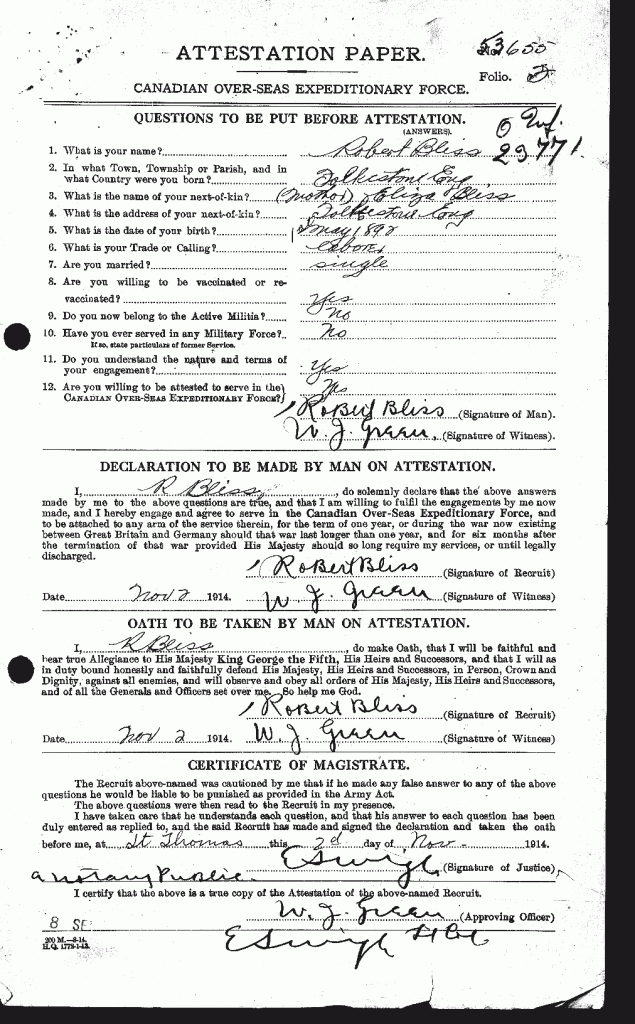 53655
ATTESTATION PAPER.
Folio.
CANADIAN OVER-SEAS EXPEDITIONARY FORCE.
QUESTIONS TO BE PUT BEFORE ATTESTATION.
(ANSWERS).
23771.
1. What is your name? Robert Bliss
2. In what Town, Township or Parish, and in
what Country were you born? Folkestone Eng
3. What is the name of your next-of-kin? (Mother) Eliza Bliss
4. What is the address of your next-of-kin? Folkestone Eng
5. What is the date of your birth? May 1892
6. What is your Trade or Calling? Labor
7. Are you married? single
8. Are you willing to be vaccinated or re-
vaccinated? Yes
9. Do you now belong to the Active Militia? No
10. Have you ever served in any Military Force? No
If so, state particulars of former Service.
11. Do you understand the nature and terms of
your engagement? Yes
12. Are you willing to be attested to serve in the
CANADIAN OVER-SEAS EXPEDITIONARY FORCE?
Robert Bliss (Signature of Man).
W. J. Green. (Signature of Witness).
DECLARATION TO BE MADE BY MAN ON ATTESTATION.
I, R Bliss, do solemnly declare that the above answers
made by me to the above questions are true, and that I am willing to fulfil the engagements by me now
made, and I hereby engage and agree to serve in the Canadian Over-Seas Expeditionary Force, and
to be attached to any arm of the service therein, for the term of one year, or during the war now existing
between Great Britain and Germany should that war last longer than one year, and for six months after
the termination of that war provided His Majesty should so long require my services, or until legally
discharged.
Robert Bliss (Signature of Recruit)
Date Nov 2 1914. W. J. Green (Signature of Witness)
OATH TO BE TAKEN BY MAN ON ATTESTATION.
I, R Bliss, do make Oath, that I will be faithful and
bear true Allegiance to His Majesty King George the Fifth, His Heirs and Successors, and that I will as
in duty bound honestly and faithfully defend His Majesty, His Heirs and Successors, in Person, Crown and
Dignity, against all enemies, and will observe and obey all orders of His Majesty, His Heirs and Successors,
and of all the Generals and Officers set over me. So help me God.
Robert Bliss (Signature of Recruit)
Date Nov 2 1914. W. J. Green (Signature of Witness)
CERTIFICATE OF MAGISTRATE.
The Recruit above-named was cautioned by me that if he made any false answer to any of the above
questions he would be liable to be punished as provided in the Army Act.
The above questions were then read to the Recruit in my presence.
I have taken care that he understands each question, and that his answer to each question has been
duly entered as replied to, and the said Recruit has made and signed the declaration and taken the oath
before me, at St. Thomas this 2d day of Nov. 1914.
(Signature of Justice)
a notary Public.
I certify that the above is a true copy of the Attestation of the above-named Recruit.
W. J. Green (Approving Officer)
8 SE
200 M.—8-14.
H.Q. 1772-1-13.